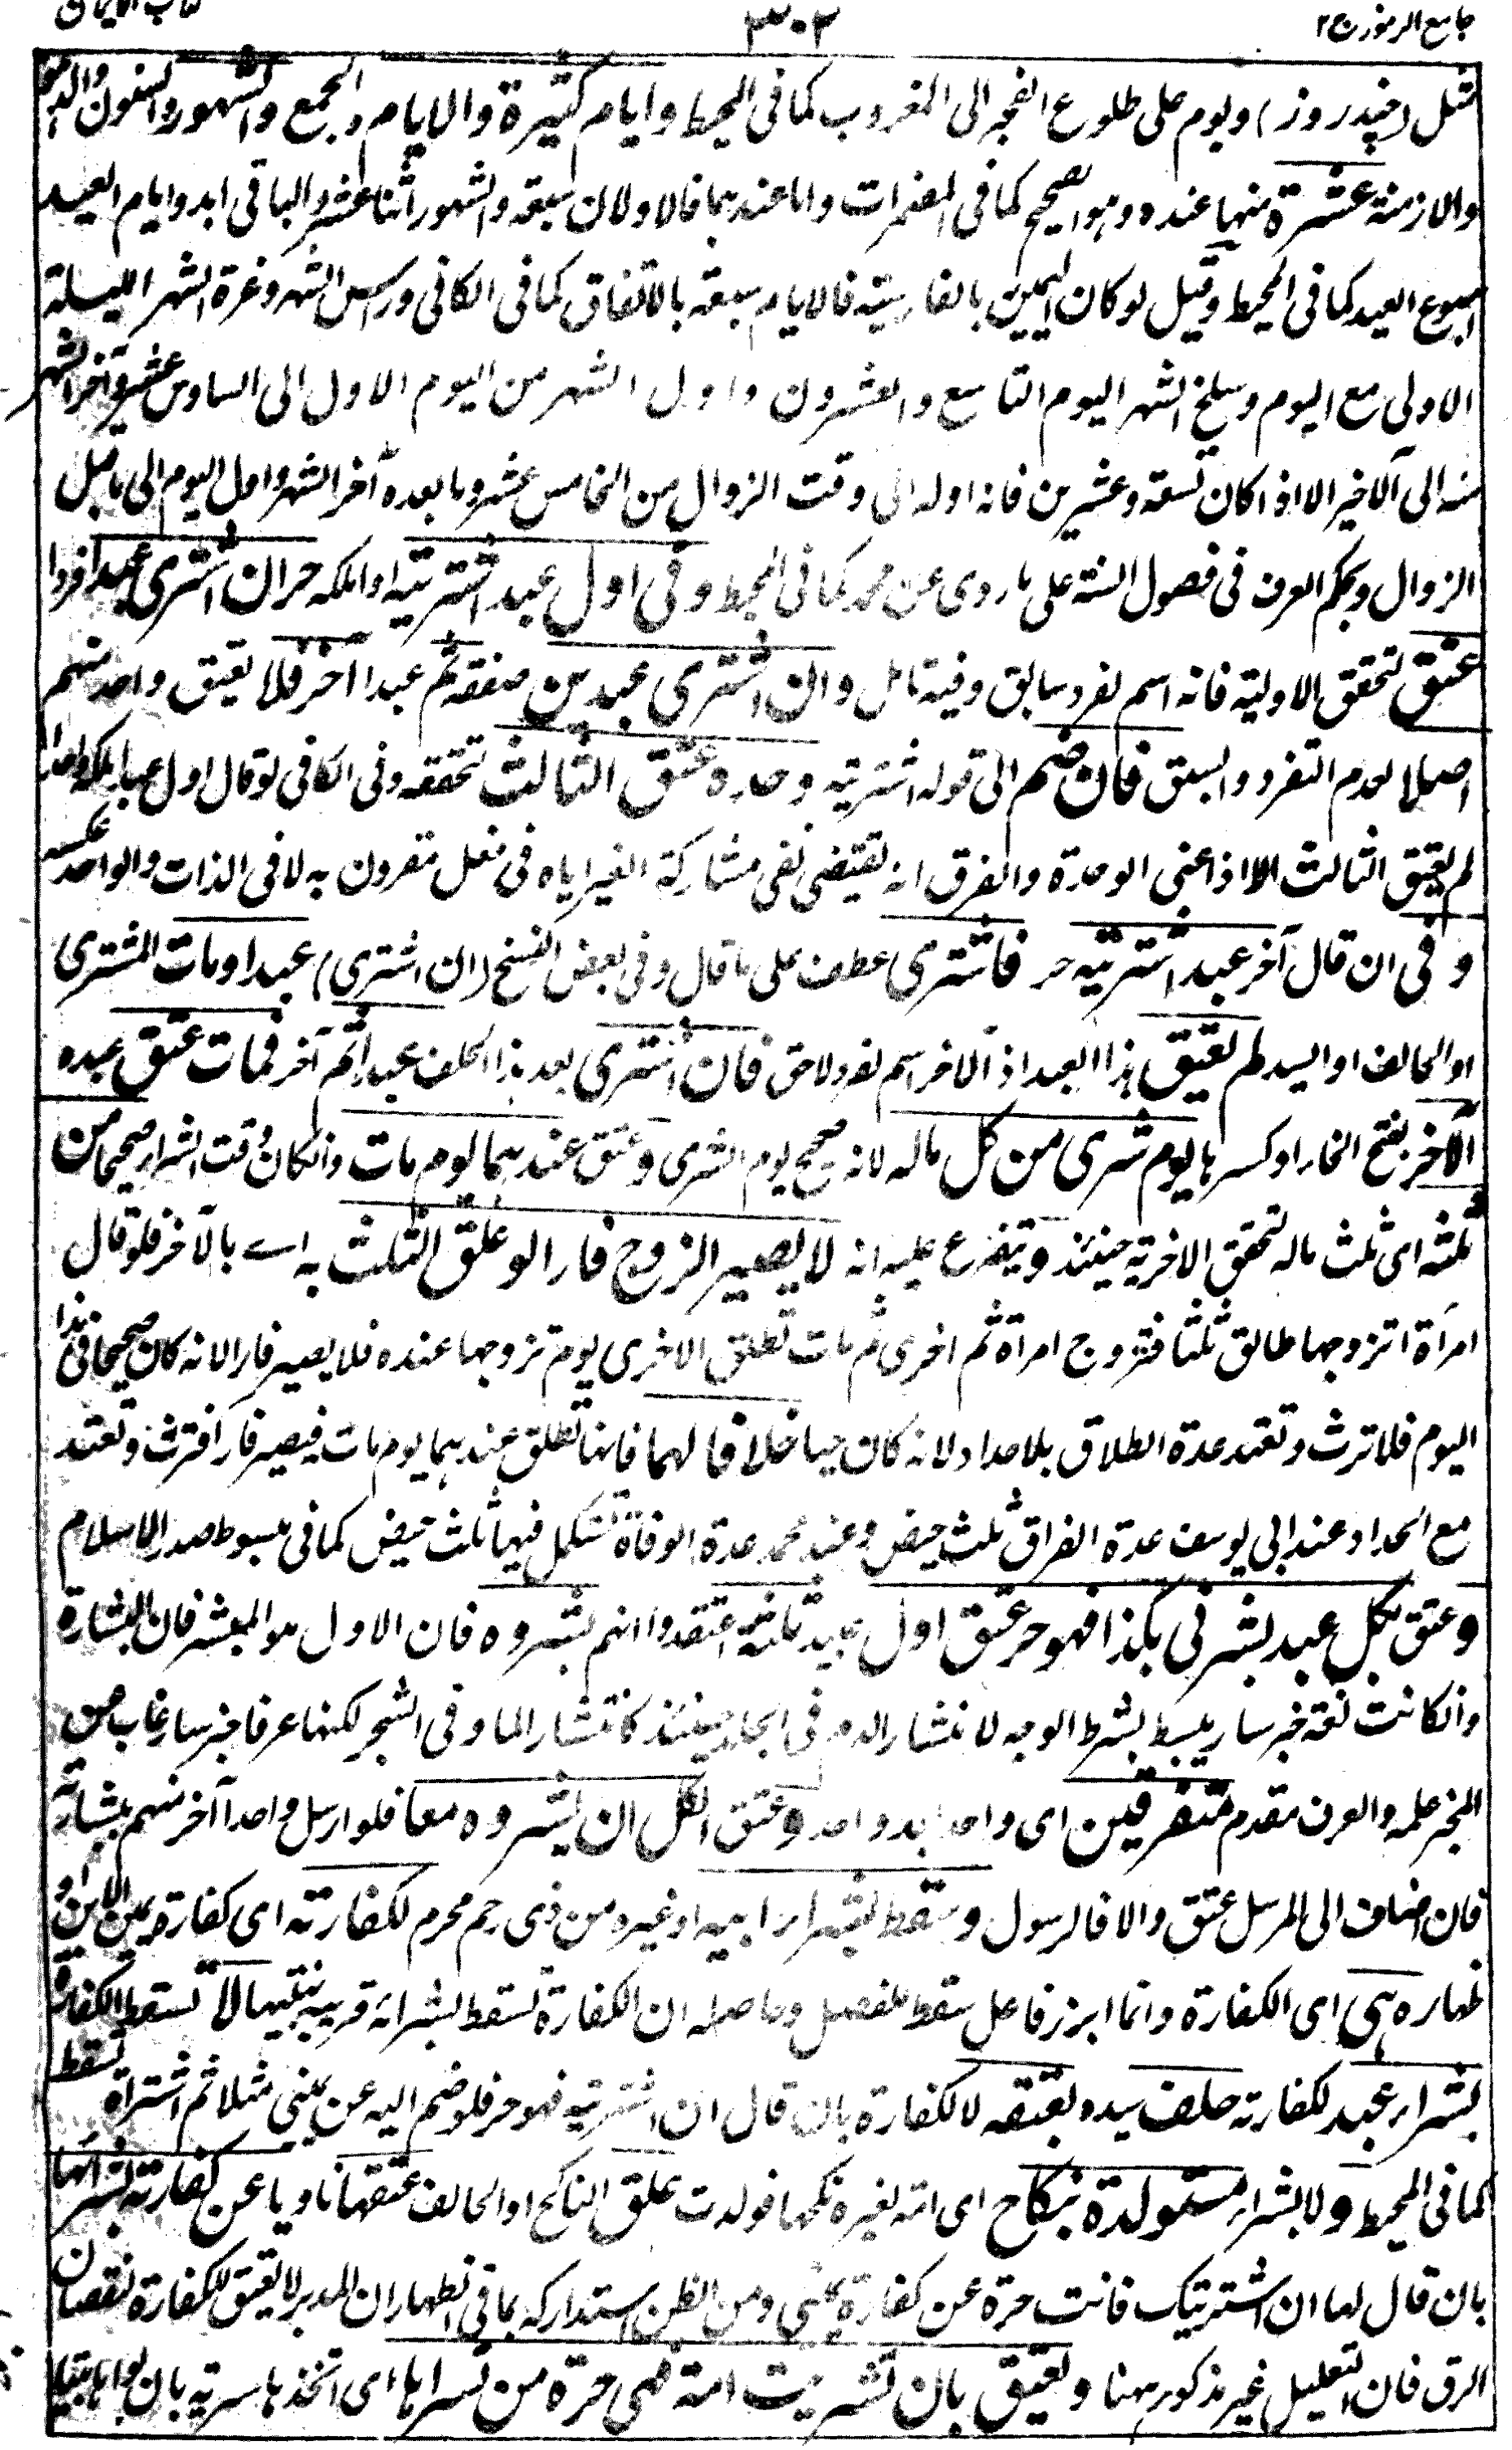 جامع الرموز ج ۲ ۳۰۲ كتاب الايمان
مثل (چند روز) ويوم على طلوع الفجر الى الغروب كما فى المحيط وايام كثيرة والايام والجمع والشهور والسنون
والازمنة عشرة منها عنده وهو الصحيح كما فى المضمرات واما عندهما فالاولان سبعة والشهور اثنا عشر والباقى ابد وايام العيد
اسبوع العيد كما فى المحيط وقيل لو كان اليمين بالفارسية فالايام سبعة بالاتفاق كما فى الكافى ورأس الشهر وغرة الشهر الليلة
الاولى مع اليوم وسلخ الشهر اليوم التاسع والعشرون واول الشهر من اليوم الاول الى السادس عشر وآخر الشهر
منه الى الآخير الا اذا كان تسعة وعشرين فانه اوله الى وقت الزوال من الخامس عشر وما بعده آخر الشهر واول اليوم الى ما قبل
الزوال وبحكم العرف فى فصول السنة على ما روى عن محمد كما فى المحيط وفى اول عبد اشتريته او املكه حر ان اشترى عبدا فردا
عتق لتحقق الاولية فانه اسم لفرد سابق وفيه تامل وان اشترى عبدين صفقة ثم عبدا آخر فلا يعتق واحد منهم
اصلا لعدم التفرد والسبق فان ضم الى قوله اشتريته وحده عتق الثالث لتحققه وفى الكافى لو قال اول عبد املكه واحدا
لم يعتق الثالث الا اذا عنى الوحدة والفرق انه يقتضى نفى مشاركة الغير اياه فى فعل مقرون به لا فى الذات والواحد عكسه
وفى ان قال آخر عبد اشتريته حر فاشترى عطف على ما قال وفى بعض النسخ (ان اشترى) عبدا ومات المشترى
او الحالف او السيد لم يعتق هذا العبد اذ الآخر اسم لفرد لاحق فان اشترى بعد هذا الحلف عبدا ثم آخر فمات عتق عبده
الآخر بفتح الخاء او كسرها يوم شرى من كل ماله لانه صحيح يوم الشرى وعتق عندهما يوم مات وان كان وقت الشراء صحيحا من
ثلثه اى ثلث ماله لتحقق الاخرية حينئذ ويتفرع عليه انه لا يصير الزوج فارا لو علق الثلث به اے بالآخر فلو قال
امرأة اتزوجها طالق ثلثا فتزوج امرأة ثم اخرى ثم مات تطلق الاخرى يوم تزوجها عنده فلا يصير فارا لانه كان صحيحا فى هذا
اليوم فلا ترث وتعتد عدة الطلاق بلا حداد لانه كان حيا خلافا لهما فانها تطلق عندهما يوم مات فيصير فارا فترث وتعتد
مع الحداد وعند ابى يوسف عدة الفراق ثلث حيض وعند محمد عدة الوفاة تستكمل فيها ثلث حيض كما فى مبسوط صدر الاسلام
وعتق بكل عبد بشرنى بكذا فهو حر عتق اول عبيد ثلثة اعتقدوا انهم بشروه فان الاول هو المبشر فان البشارة
وان كانت لغة خبر سار يبسط بشرط الوجه لانتشار الدم فى الجلد حينئذ كانتشار الماء فى الشجر لكنها عرفا خبر سار غاب عن
المخبر علمه والعرف مقدم متفرقين اى واحدا بعد واحد وعتق الكل ان بشروه معا فلو ارسل واحدا آخر منهم ببشارته
فان اضاف الى المرسل عتق والا فالرسول وسقط بشراء ابيه او غيره من ذى رحم محرم لكفارته اى كفارة يمين الابن او
ظهاره هى اى الكفارة وانما ابرز فاعل سقط للفصل وحاصله ان الكفارة تسقط بشرائه قريبه بنيتها لا تسقط الكفارة
بشراء عبد لكفارته حلف سيده بعتقه لا لكفارة بان قال ان اشتريته فهو حر فلو ضم اليه عن يمينى مثلا ثم اشتراه تسقط
كما فى المحيط ولا بشراء مستولدة بنكاح اى امة لغيره نكحها فولدت علق الناكح او الحالف عتقها ناويا عن كفارته بشرائها
بان قال لها ان اشتريتك فانت حرة عن كفارة يمينى ومن الظن استدراكه بما فى الظهار ان المدبر لا يعتق للكفارة لنقصان
الرق فان التعليل غير مذكور ههنا ويعتق بان تسريت امة فهى حرة من تسراها اى اتخذها سرية بان بوأها بيتا